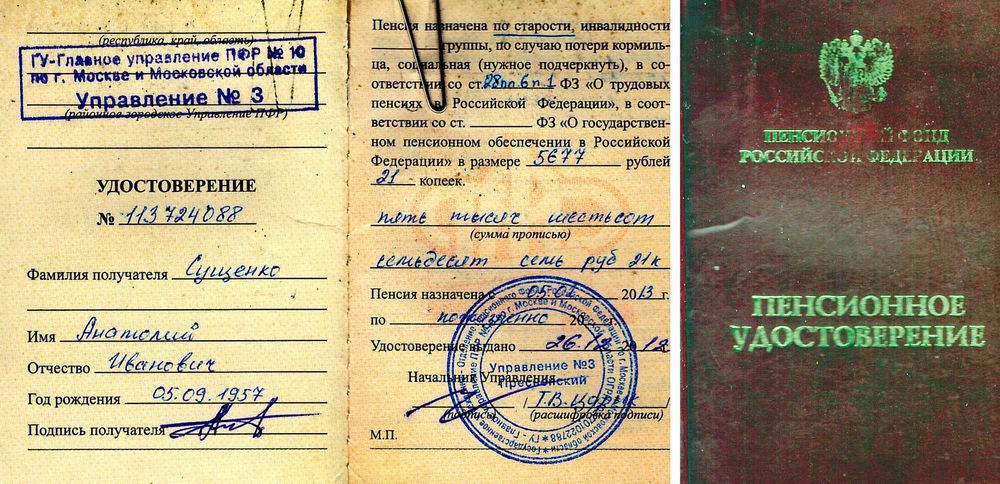 (республика, край, область)
ГУ-Главное управление ПФР № 10
по г. Москве и Московской области
Управление № 3
(районное городское Управление ПФР)
УДОСТОВЕРЕНИЕ
№ 113724088
Фамилия получателя Сущенко
Имя Анатолий
Отчество Иванович
Год рождения 05.09.1957
Подпись получателя
Пенсия назначена по старости, инвалидности
группы, по случаю потери кормиль-
ца, социальная (нужное подчеркнуть), в со-
ответствии со ст. 28пп6п1 ФЗ «О трудовых
пенсиях в Российской Федерации», в соот-
ветствии со ст. ФЗ «О государствен-
ном пенсионном обеспечении в Российской
Федерации» в размере 5677 рублей
21 копеек.
пять тысяч шестьсот
(сумма прописью)
семьдесят семь руб 21к
Пенсия назначена с 2013 г.
по пожизненно 20
Удостоверение выдано 26.12 2012
Начальник Управления
(подпись) (расшифровка подписи)
М.П.
Управление №3
Пресненский
ПЕНСИОННЫЙ ФОНД
РОССИЙСКОЙ ФЕДЕРАЦИИ
ПЕНСИОННОЕ
УДОСТОВЕРЕНИЕ